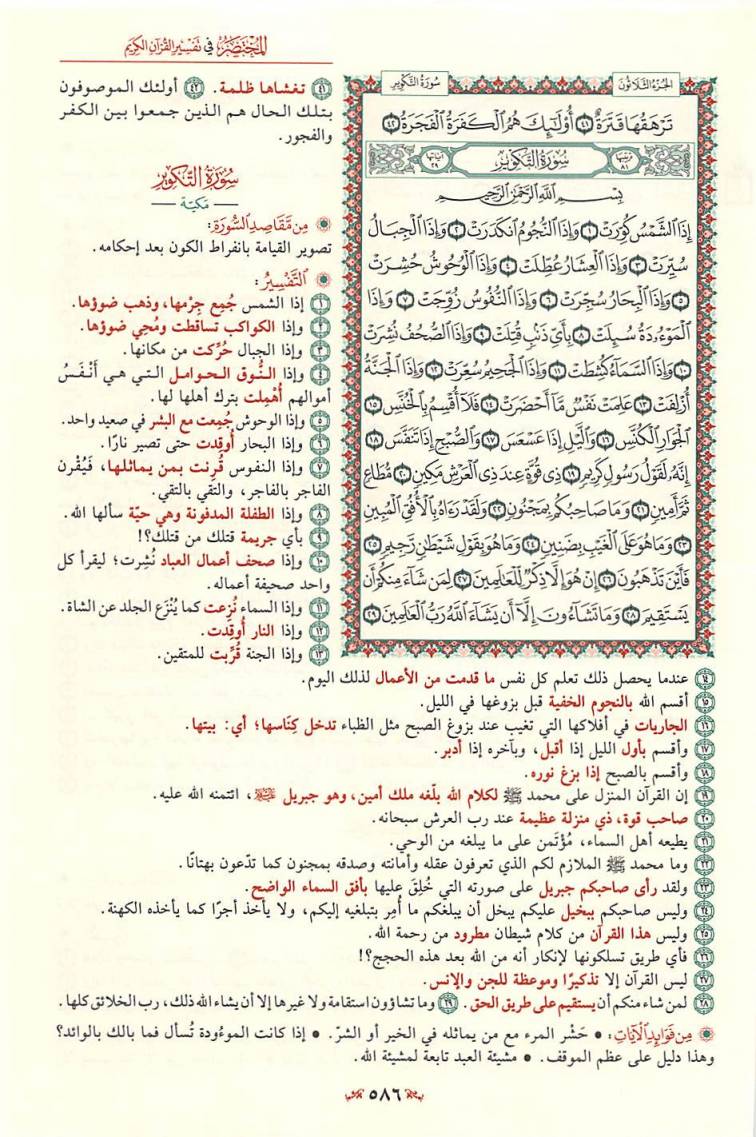 المختصر في تفسير القرآن الكريم
الجزء الثلاثون
سورة التكوير
تَرْهَقُهَا قَتَرَةٌ ٤١ أُوْلَٰٓئِكَ هُمُ ٱلْكَفَرَةُ ٱلْفَجَرَةُ ٤٢
ترتيبها ٨١ سُورَةُ التَّكْوِيرِ آياتها ٢٩
بِسْمِ ٱللَّهِ ٱلرَّحْمَٰنِ ٱلرَّحِيمِ
إِذَا ٱلشَّمْسُ كُوِّرَتْ ١ وَإِذَا ٱلنُّجُومُ ٱنكَدَرَتْ ٢ وَإِذَا ٱلْجِبَالُ
سُيِّرَتْ ٣ وَإِذَا ٱلْعِشَارُ عُطِّلَتْ ٤ وَإِذَا ٱلْوُحُوشُ حُشِرَتْ
٥ وَإِذَا ٱلْبِحَارُ سُجِّرَتْ ٦ وَإِذَا ٱلنُّفُوسُ زُوِّجَتْ ٧ وَإِذَا
ٱلْمَوْءُۥدَةُ سُئِلَتْ ٨ بِأَيِّ ذَنۢبٍ قُتِلَتْ ٩ وَإِذَا ٱلصُّحُفُ نُشِرَتْ
١٠ وَإِذَا ٱلسَّمَآءُ كُشِطَتْ ١١ وَإِذَا ٱلْجَحِيمُ سُعِّرَتْ ١٢ وَإِذَا ٱلْجَنَّةُ
أُزْلِفَتْ ١٣ عَلِمَتْ نَفْسٌ مَّآ أَحْضَرَتْ ١٤ فَلَآ أُقْسِمُ بِٱلْخُنَّسِ ١٥
ٱلْجَوَارِ ٱلْكُنَّسِ ١٦ وَٱلَّيْلِ إِذَا عَسْعَسَ ١٧ وَٱلصُّبْحِ إِذَا تَنَفَّسَ ١٨
إِنَّهُۥ لَقَوْلُ رَسُولٍ كَرِيمٍ ١٩ ذِي قُوَّةٍ عِندَ ذِي ٱلْعَرْشِ مَكِينٍ ٢٠ مُّطَاعٍ
ثَمَّ أَمِينٍ ٢١ وَمَا صَاحِبُكُم بِمَجْنُونٍ ٢٢ وَلَقَدْ رَءَاهُ بِٱلْأُفُقِ ٱلْمُبِينِ
٢٣ وَمَا هُوَ عَلَى ٱلْغَيْبِ بِضَنِينٍ ٢٤ وَمَا هُوَ بِقَوْلِ شَيْطَٰنٍ رَّجِيمٍ ٢٥
فَأَيْنَ تَذْهَبُونَ ٢٦ إِنْ هُوَ إِلَّا ذِكْرٌ لِّلْعَٰلَمِينَ ٢٧ لِمَن شَآءَ مِنكُمْ أَن
يَسْتَقِيمَ ٢٨ وَمَا تَشَآءُونَ إِلَّآ أَن يَشَآءَ ٱللَّهُ رَبُّ ٱلْعَٰلَمِينَ ٢٩
٤١ تغشاها ظلمة. ٤٢ أولئك الموصوفون
بتلك الحال هم الذين جمعوا بين الكفر
والفجور.
سورة التكوير
مكية
من مقاصد السورة:
تصوير القيامة بانفراط الكون بعد إحكامه.
التفسير:
١ إذا الشمس جُمِع جِرْمها، وذهب ضوؤها.
٢ وإذا الكواكب تساقطت ومُحِي ضوؤها.
٣ وإذا الجبال حُرِّكت من مكانها.
٤ وإذا النُّوق الحوامل التي هي أَنْفَسُ
أموالهم أُهْمِلت بترك أهلها لها.
٥ وإذا الوحوش جُمِعت مع البشر في صعيد واحد.
٦ وإذا البحار أُوقِدت حتى تصير نارًا.
٧ وإذا النفوس قُرِنت بمن يماثلها، فيُقْرن
الفاجر بالفاجر، والتقي بالتقي.
٨ وإذا الطفلة المدفونة وهي حيّة سألها الله.
٩ بأي جريمة قتلك من قتلك؟!
١٠ وإذا صحف أعمال العباد نُشِرت؛ ليقرأ كل
واحد صحيفة أعماله.
١١ وإذا السماء نُزِعت كما يُنْزَع الجلد عن الشاة.
١٢ وإذا النار أُوقِدت.
١٣ وإذا الجنة قُرِّبت للمتقين.
١٤ عندما يحصل ذلك تعلم كل نفس ما قدمت من الأعمال لذلك اليوم.
١٥ أقسم الله بالنجوم الخفية قبل بزوغها في الليل.
١٦ الجاريات في أفلاكها التي تغيب عند بزوغ الصبح مثل الظباء تدخل كِنَاسها؛ أي: بيتها.
١٧ وأقسم بأول الليل إذا أقبل، وبآخره إذا أدبر.
١٨ وأقسم بالصبح إذا بزغ نوره.
١٩ إن القرآن المنزل على محمد ﷺ لكلام الله بلّغه ملك أمين، وهو جبريل ﷺ، ائتمنه الله عليه.
٢٠ صاحب قوة، ذي منزلة عظيمة عند رب العرش سبحانه.
٢١ يطيعه أهل السماء، مُؤْتَمن على ما يبلغه من الوحي.
٢٢ وما محمد ﷺ الملازم لكم الذي تعرفون عقله وأمانته وصدقه بمجنون كما تدّعون بهتانًا.
٢٣ ولقد رأى صاحبكم جبريل على صورته التي خُلِقَ عليها بأفق السماء الواضح.
٢٤ وليس صاحبكم ببخيل عليكم يبخل أن يبلغكم ما أُمِر بتبلغيه إليكم، ولا يأخذ أجرًا كما يأخذه الكهنة.
٢٥ وليس هذا القرآن من كلام شيطان مطرود من رحمة الله.
٢٦ فأي طريق تسلكونها لإنكار أنه من الله بعد هذه الحجج؟!
٢٧ ليس القرآن إلا تذكيرًا وموعظة للجن والإنس.
٢٨ لمن شاء منكم أن يستقيم على طريق الحق. ٢٩ وما تشاؤون استقامة ولا غيرها إلا أن يشاء الله ذلك، رب الخلائق كلها.
من فوائد الآيات: • حَشْر المرء مع من يماثله في الخير أو الشرّ. • إذا كانت الموءُودة تُسأل فما بالك بالوائد؟
وهذا دليل على عظم الموقف. • مشيئة العبد تابعة لمشيئة الله.
٥٨٦